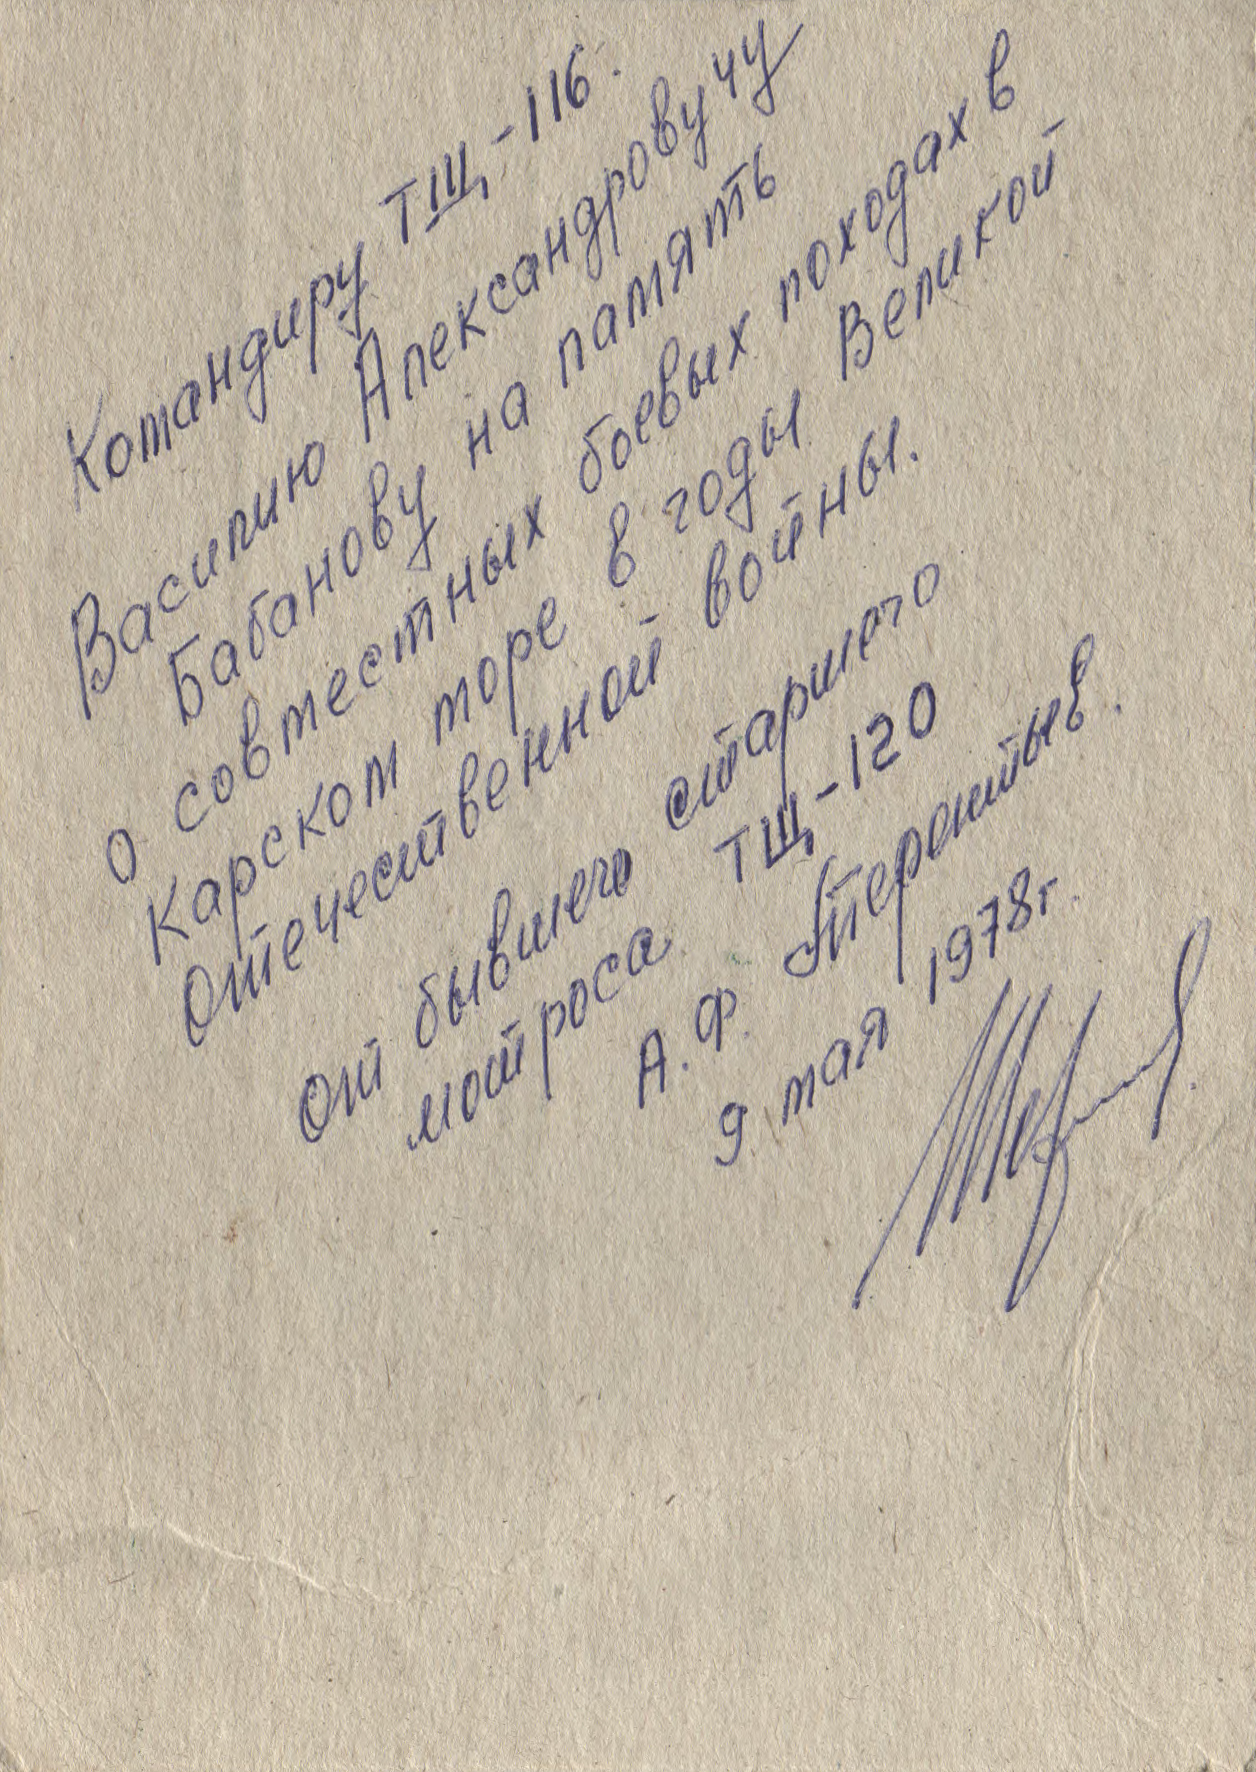 Командиру ТЩ-116.
Василию Александровучу
Бабанову на память
о совместных боевых походах в
Карском море в годы Великой
Отечественной войны.
От бывшего старшего
мотроса ТЩ-120
А.Ф. Терентьев.
9 мая 1978г.